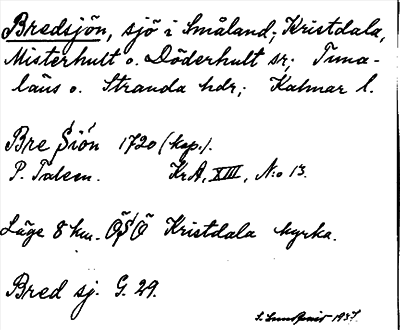 Bredsjön, sjö i Småland; Kristdala,
Misterhult o. Döderhult sr; Tuna-
läns o. Stranda hdr; Kalmar l.
Bre Siön 1720 (kop.).
P. Talem. KrA, XIII, N:o 13.
Läge 8 km. ÖSÖ Kristdala kyrka.
Bred sj. G. 29.
1937.